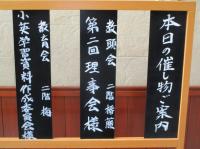 本日の催し物ご案内
教頭会 二階 梅
第二回理事会様
教育会 二階 梅
小英学習資料作成委員会様